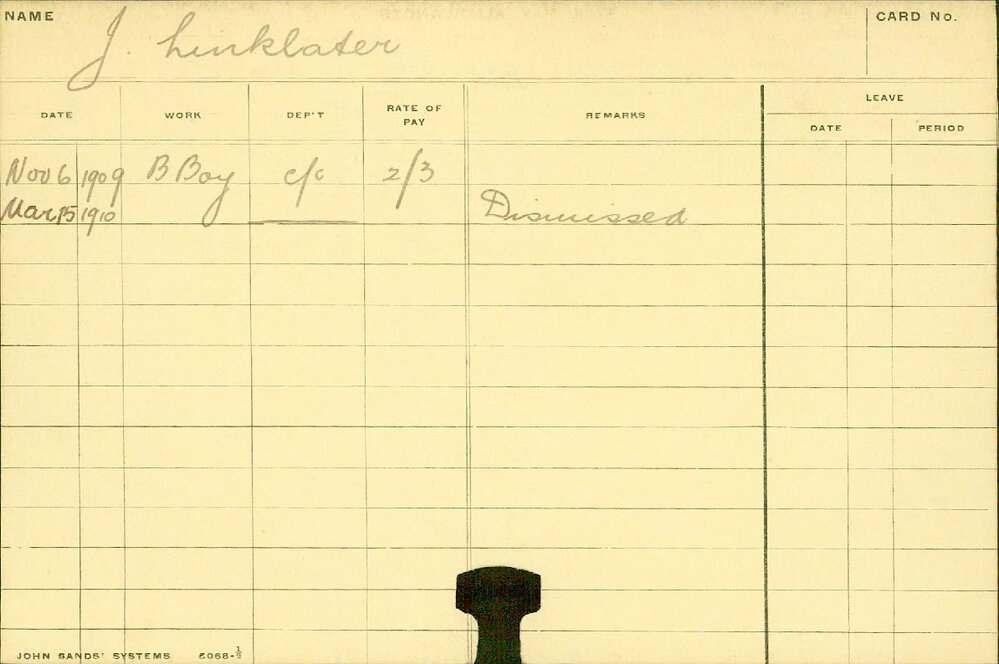 NAME J. Linklater CARD No.
LEAVE
DATE WORK DEP'T RATE OF PAY REMARKS DATE PERIOD
Nov 6 1909 B Boy c/c 2/3
Mar 15 1910 Dismissed
JOHN SANDS' SYSTEMS 6068-½